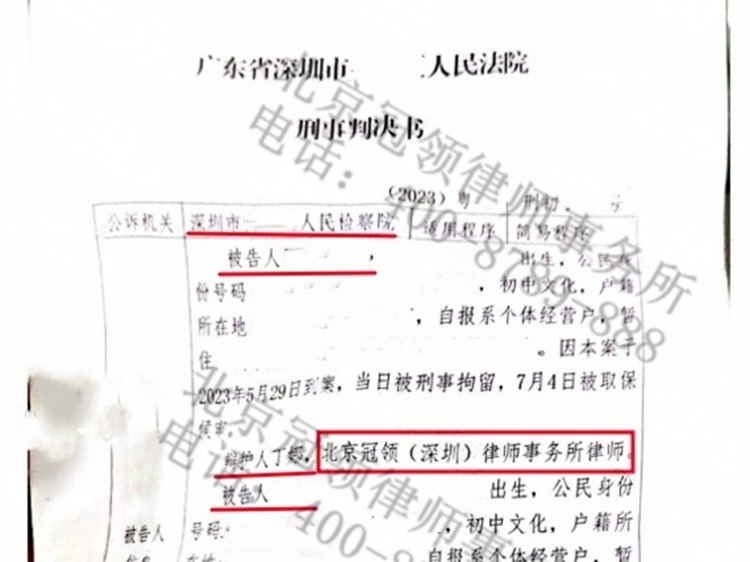 广东省深圳市 人民法院
刑事判决书
(2023)粤 刑初 号
公诉机关 深圳市 人民检察院 适用程序 简易程序
被告人 , 出生,公民身
份号码 ,初中文化,户籍
所在地 ,自报系个体经营户,暂
住 。因本案于
2023年5月29日到案,当日被刑事拘留,7月4日被取保
候审。
辩护人丁 ,北京冠领(深圳)律师事务所律师。
被告人 出生,公民身份
被告人 号码: ,初中文化,户籍所
信息 在地: 自报系个体经营户,暂
北京冠领律师事务所
电话:400-8789-888
北京冠领律师事务所
电话:400-8789-888